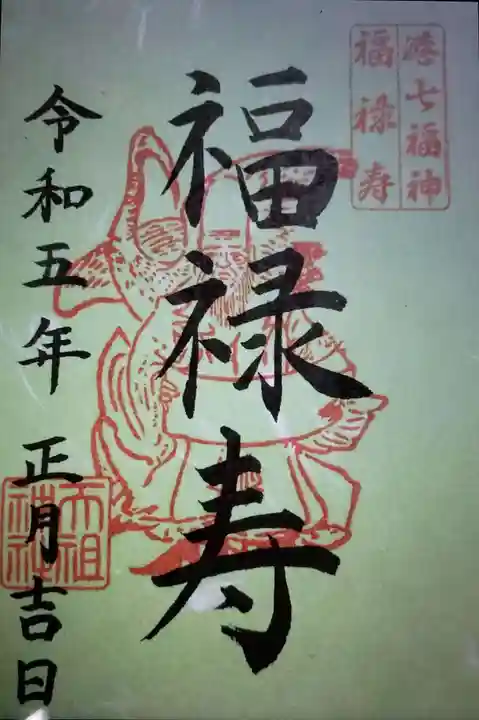 港七福神
福禄寿
福禄寿
令和五年 正月吉日
天祖
神社